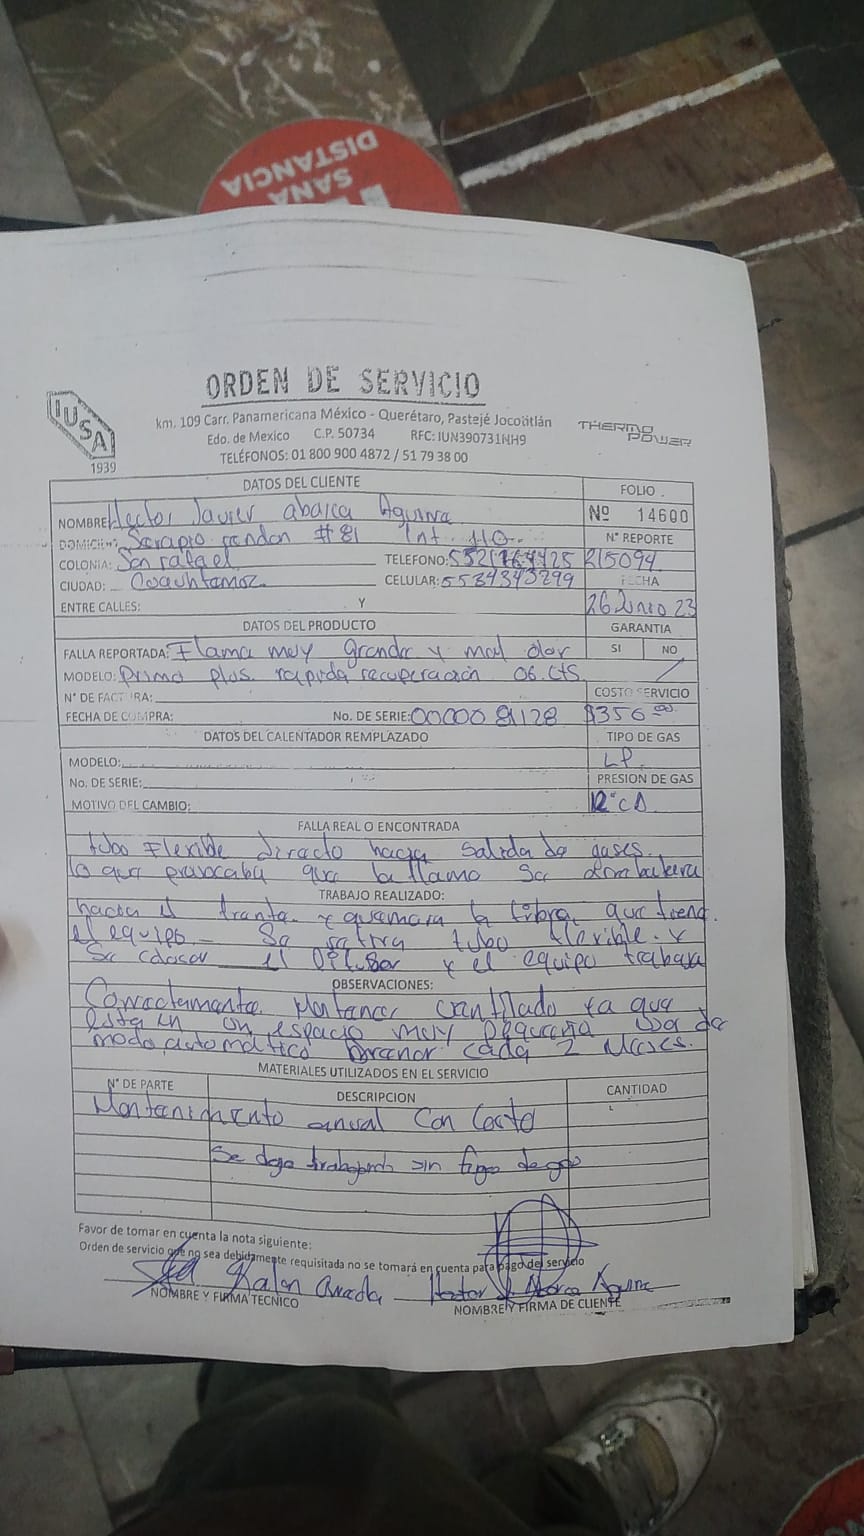 SANA
DISTANCIA
ORDEN DE SERVICIO
IUSA
1939
km. 109 Carr. Panamericana México - Querétaro, Pastejé Jocotitlán
Edo. de Mexico C.P. 50734 RFC: IUN390731NH9
TELÉFONOS: 01 800 900 4872 / 51 79 38 00
THERMO POWER
DATOS DEL CLIENTE FOLIO
NOMBRE: Hector Javier abarca Aguirre Nº 14600
DOMICILIO: Serapio rendon #81 Int. 110. N° REPORTE
COLONIA: San rafael TELEFONO: 215094
CIUDAD: Cuauhtemoc CELULAR: 5534343299 FECHA
ENTRE CALLES: Y 26 Junio 23
DATOS DEL PRODUCTO GARANTIA
FALLA REPORTADA: Flama muy grande y mal olor SI NO
MODELO: Prima plus. rapida recuperación 06. Lts.
N° DE FACTURA: COSTO SERVICIO
FECHA DE COMPRA: No. DE SERIE: $350.00
DATOS DEL CALENTADOR REMPLAZADO TIPO DE GAS
MODELO: LP.
No. DE SERIE: PRESION DE GAS
MOTIVO DEL CAMBIO:
FALLA REAL O ENCONTRADA
tubo Flexible directo hacia salida de gases.
lo que provocaba que la flama se
TRABAJO REALIZADO:
hacia el frente y quemara la fibra que tiene
el equipo. Se retira tubo flexible. y
Se coloca el Difusor y el equipo trabaja
OBSERVACIONES:
Correctamente. Mantener ventilado ya que
esta en un espacio muy pequeño
modo automático Drenar cada 2 Meses.
MATERIALES UTILIZADOS EN EL SERVICIO
N° DE PARTE DESCRIPCION CANTIDAD
Mantenimiento anual Con Costo
Se deja trabajando sin fuga de gas
Favor de tomar en cuenta la nota siguiente:
Orden de servicio que no sea debidamente requisitada no se tomará en cuenta para pago del servicio
NOMBRE Y FIRMA TECNICO
NOMBRE Y FIRMA DE CLIENTE